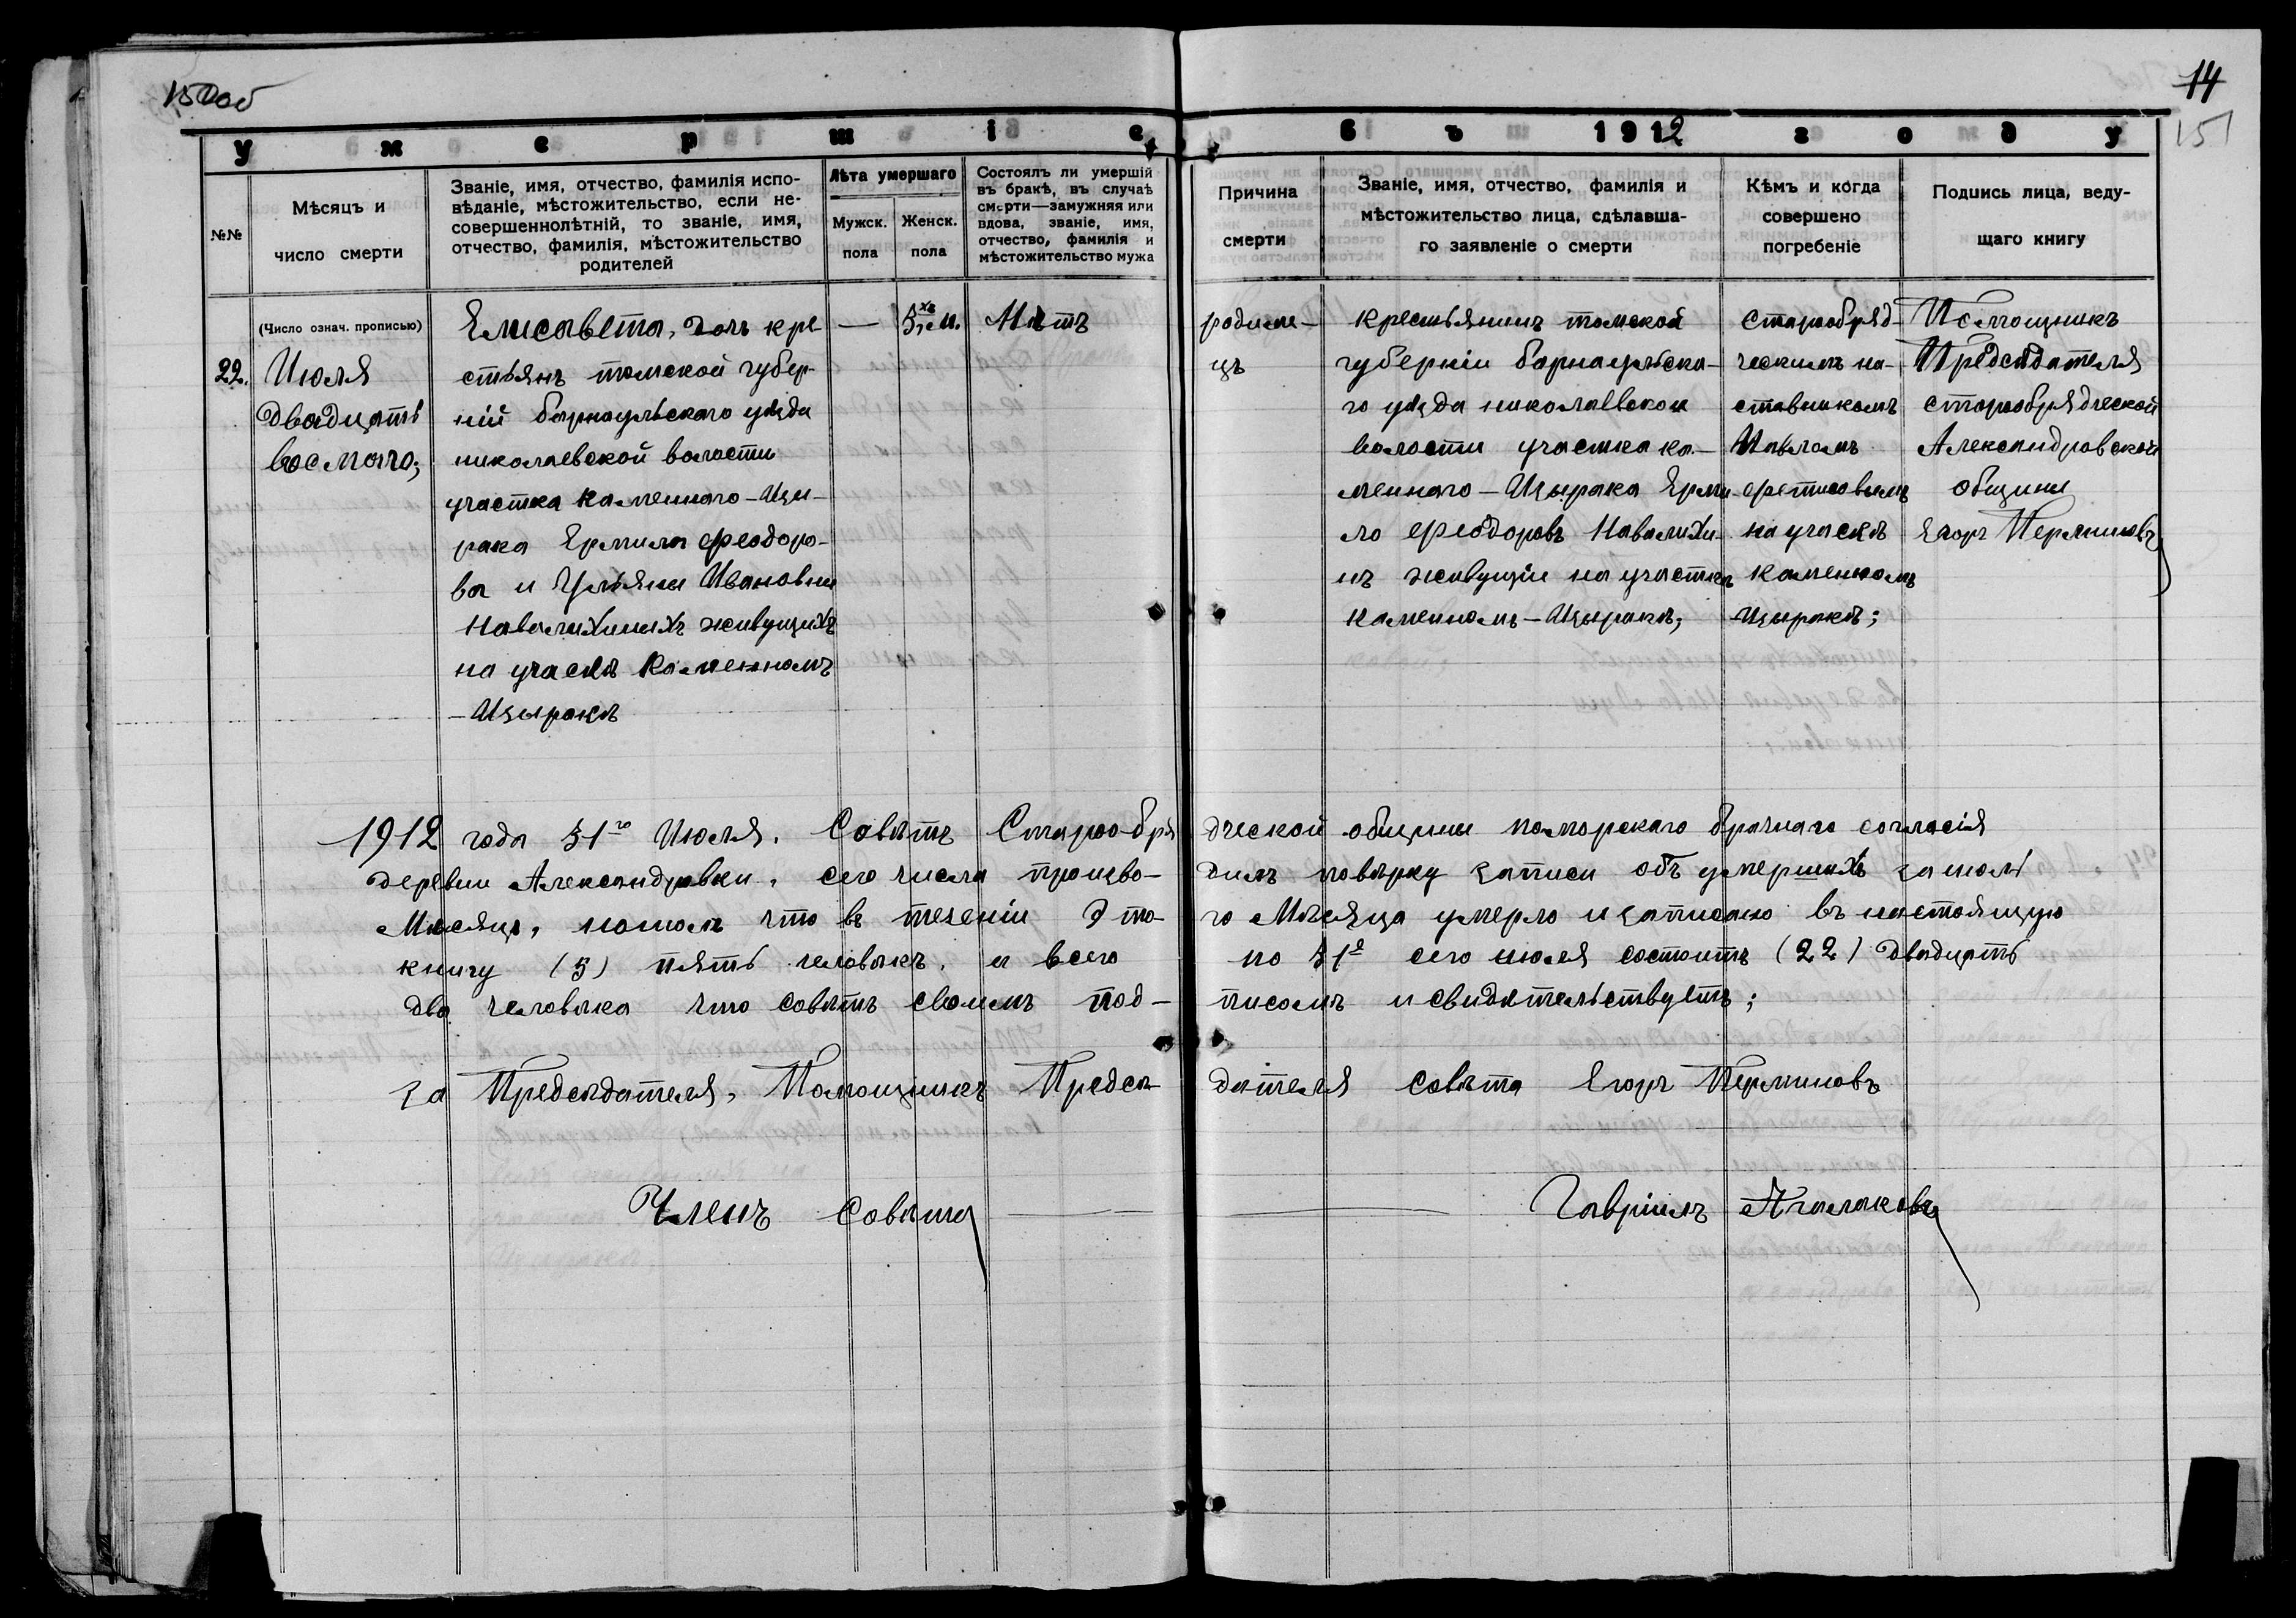 150об
14
151
Умершіе въ 1912 году
№№
Мѣсяцъ и
число смерти
Званіе, имя, отчество, фамилія испо-
вѣданіе, мѣстожительство, если не-
совершеннолѣтній, то званіе, имя,
отчество, фамилія, мѣстожительство
родителей
Лѣта умершаго
Мужск.
пола
Женск.
пола
Состоялъ ли умершій
въ бракѣ, въ случаѣ
смерти—замужняя или
вдова, званіе, имя,
отчество, фамилія и
мѣстожительство мужа
Причина
смерти
Званіе, имя, отчество, фамилія и
мѣстожительство лица, сдѣлавша-
го заявленіе о смерти
Кѣмъ и когда
совершено
погребеніе
Подпись лица, веду-
щаго книгу
(Число означ. прописью)
22.
Июля
двадцать
восмаго;
Елисавета, дочь кре-
стьянъ томской губер-
ній барнаульскаго уѣзда
николаевской воласти
участка Каменнаго-Изы-
рака Ермила Феодоро-
ва и Ульяны Ивановны
Навалихиныхъ живущихъ
на учаскѣ Каменномъ
-Изыракѣ
—
3хъ м.
Нѣтъ
родиме-
цъ
крестьянинъ томской
губерніи барнаульска-
го уѣзда николаевской
воласти участка ка-
меннаго-Изырака Ерми-
ло Феодоровъ Навалихи-
нъ живущіи на участкѣ
Каменномъ-Изыракѣ;
старообряд-
ческимъ на-
ставникомъ
Павломъ
Фетисовымъ
на учаскѣ
Каменномъ
-Изыракѣ;
Помощникъ
Предсѣдателя
старобрядческой
Александровской
общины
Егоръ Перминовъ
1912 года 31го Июля. Совѣтъ Старообря дческой общины поморскаго брачнаго согласія
деревни Александровки, сего числа произво- дилъ повѣрку записи объ умершихъ за июль
Мѣсяцъ, нашолъ что въ теченіи Это- го Мѣсяца умерло и записано въ настоящую
книгу (5) пять человѣкъ, а всего по 31е сего июля состоитъ (22) двадцать
два человѣка что совѣтъ своимъ под- писомъ и свидѣтельствуетъ;
за Предсѣдателя, Помощникъ Предсѣ- дателя совѣта Егоръ Перминовъ
Членъ Совѣта Гавріилъ